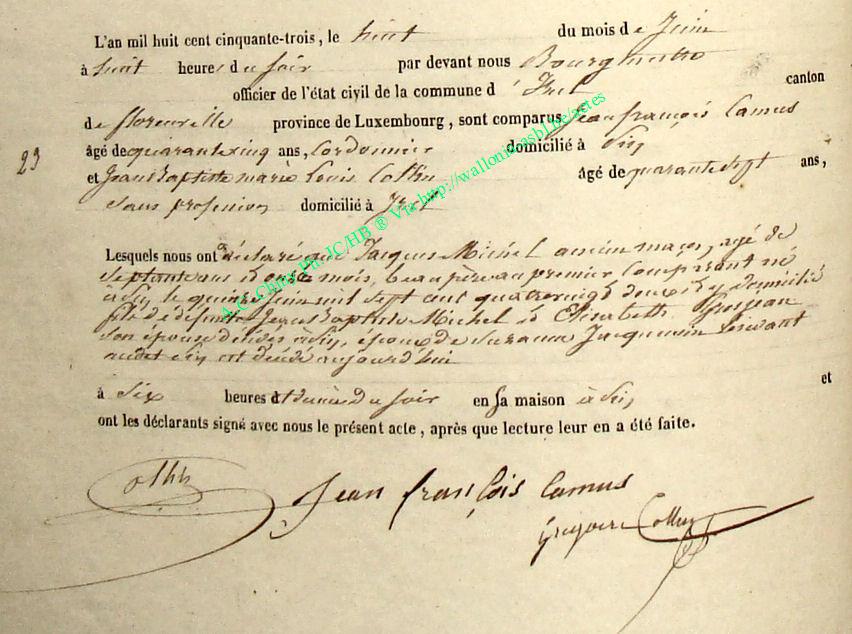 L'an mil huit cent cinquante-trois, le huit du mois de Juin
à huit heures du soir par devant nous Bourgmestre
officier de l'état civil de la commune d' Izel canton
de florenville province de Luxembourg, sont comparus Jean françois Camus
23 âgé de quarante cinq ans, Cordonnier domicilié à
et Jean Baptiste marie Louis Collin âgé de quarante sept ans,
Sans profession domicilié à Izel
Lesquels nous ont déclaré que Jacques Michel ancien maçon, agé de
ans onze mois, beau père au premier Comparant né
le quinze Juin mil sept cent quatrevingt domicilié
fils de défunts Jean Baptiste Michel Elisabeth
son épouse à époux de Suzanne Jacquemin
est décédé aujourd'hui
à Six heures du soir en sa maison à et
ont les déclarants signé avec nous le présent acte, après que lecture leur en a été faite.
Jean françois Camus
Grégoire Collin
A.C. Chiny Ph.JC/HB ® Via http://walloniaasbl.be/actes